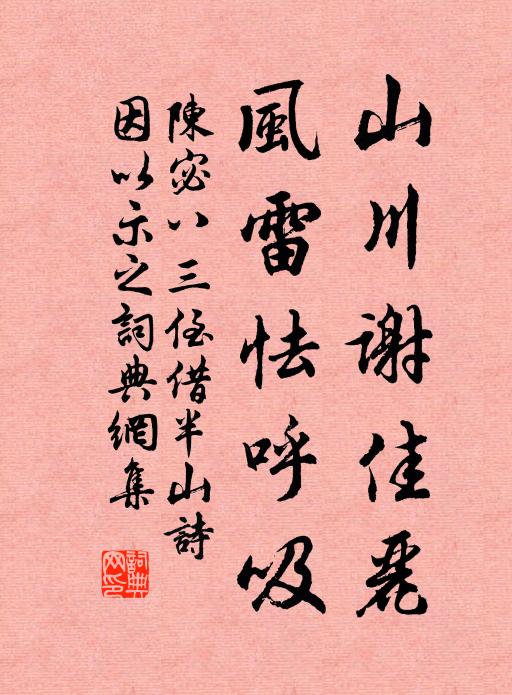 山川謝佳麗
風雷怯呼吸
陳宓八三侄借半山詩
因以示之詞典網集
詞典網印